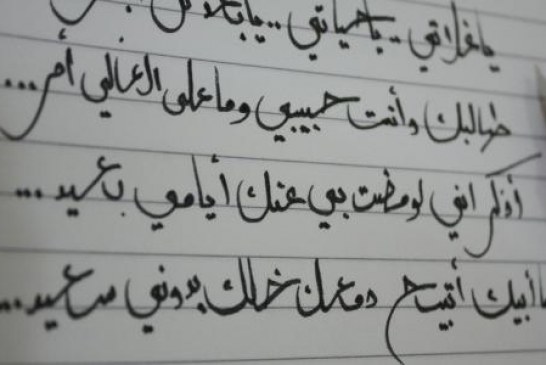 ياغلاتي .. ياحياتي .. يا
طالبك وأنت حبيبي وما على الغالي أمر ...
أذكر اني لو مضت بي عنك أيامي بعيد ...
ما أبيك أتيح دمعك خلك بدوني سعيد ...